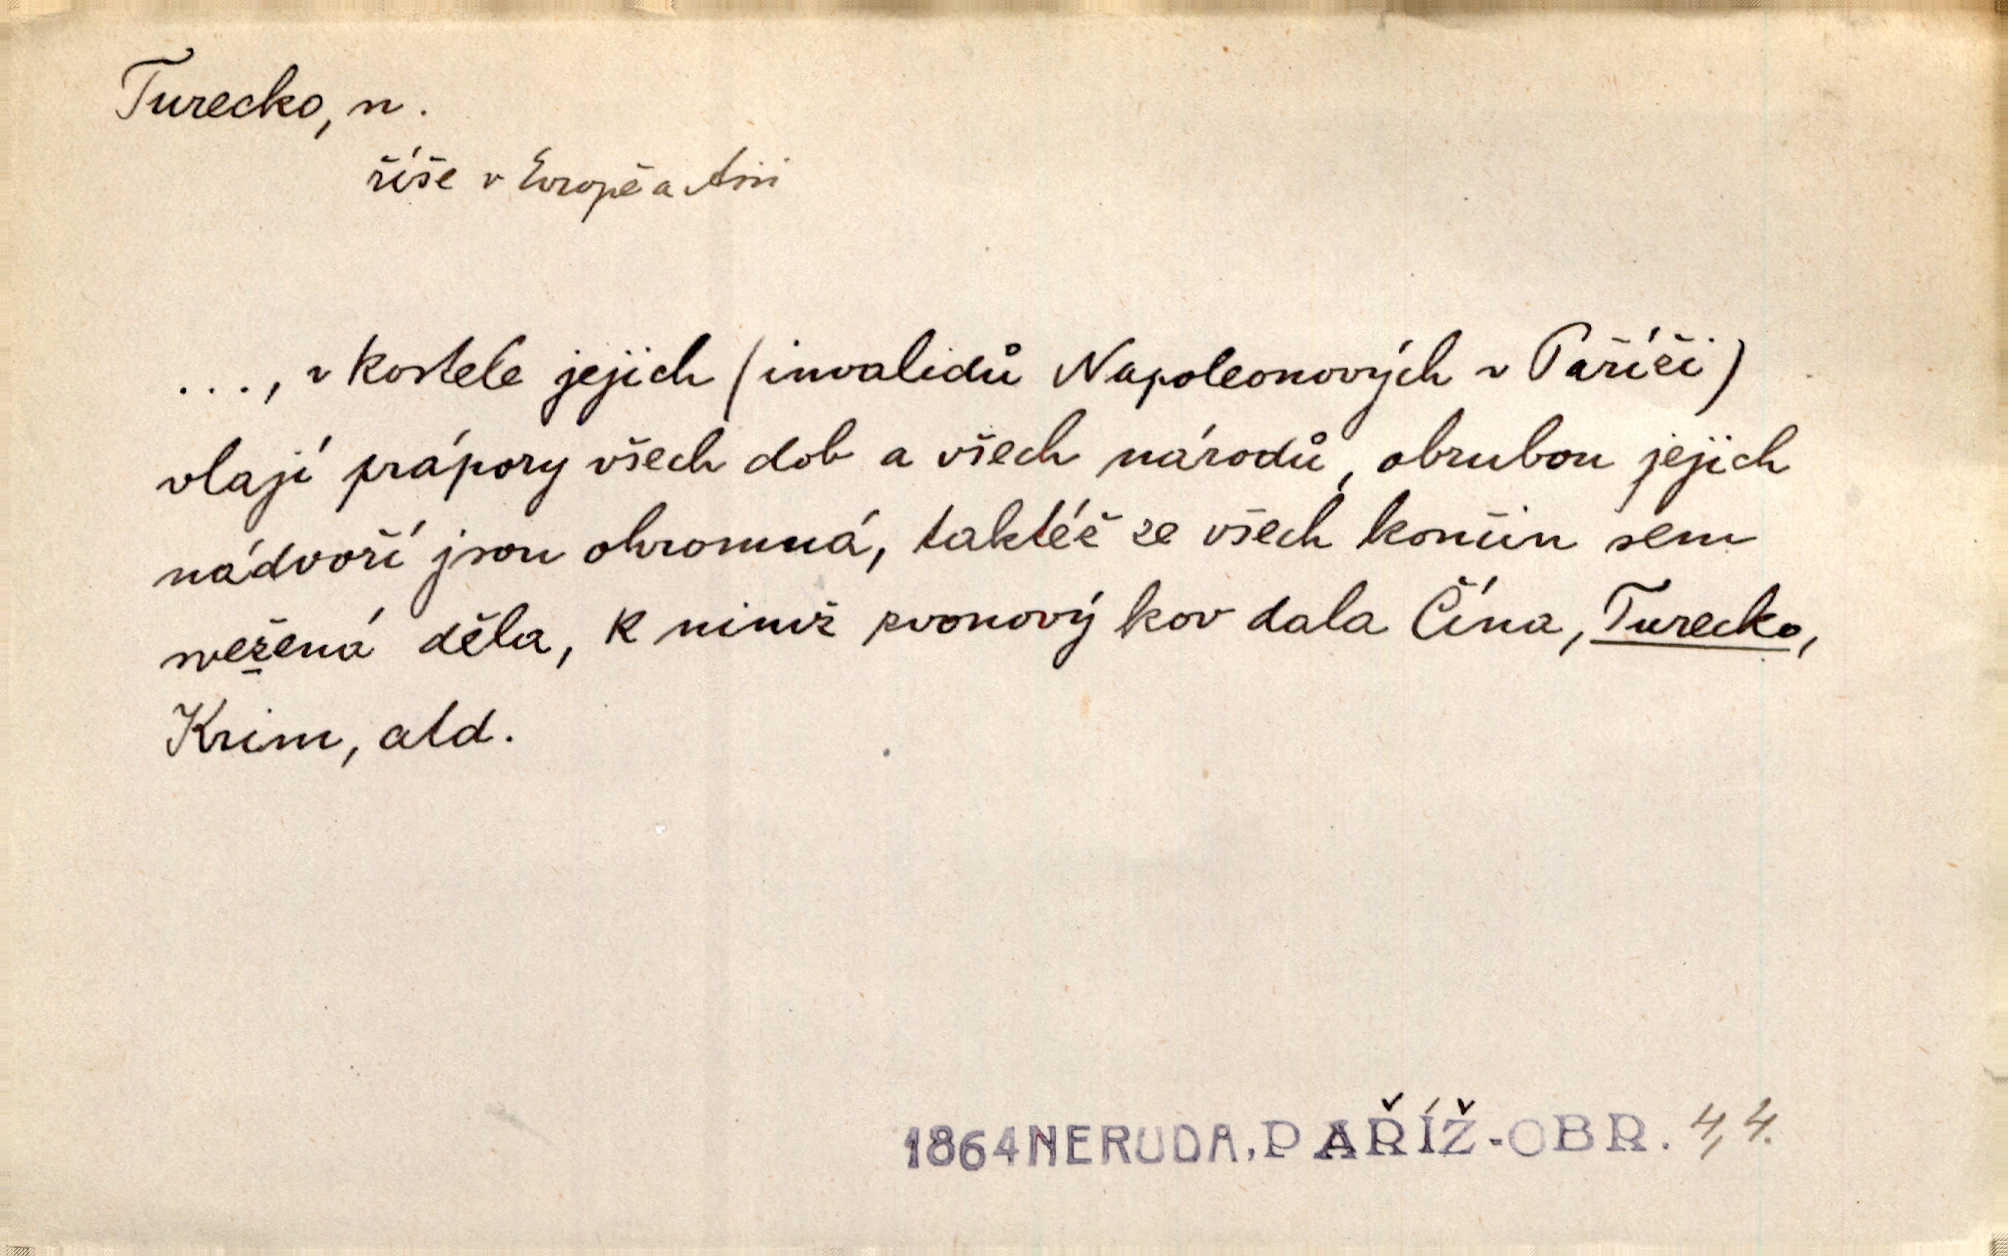 Turecko, n.
říše v Evropě a Asii
..., v kostele jejich (invalidů Napoleonových v Paříži)
vlají prápory všech dob a všech národů, obrubou jejich
nádvoří jsou ohromná, taktéž ze všech končin sem
svežená děla, k nimž zvonový kov dala Čína, Turecko,
Krim, atd.
1864 NERUDA, PAŘÍŽ-OBR. 4,4.